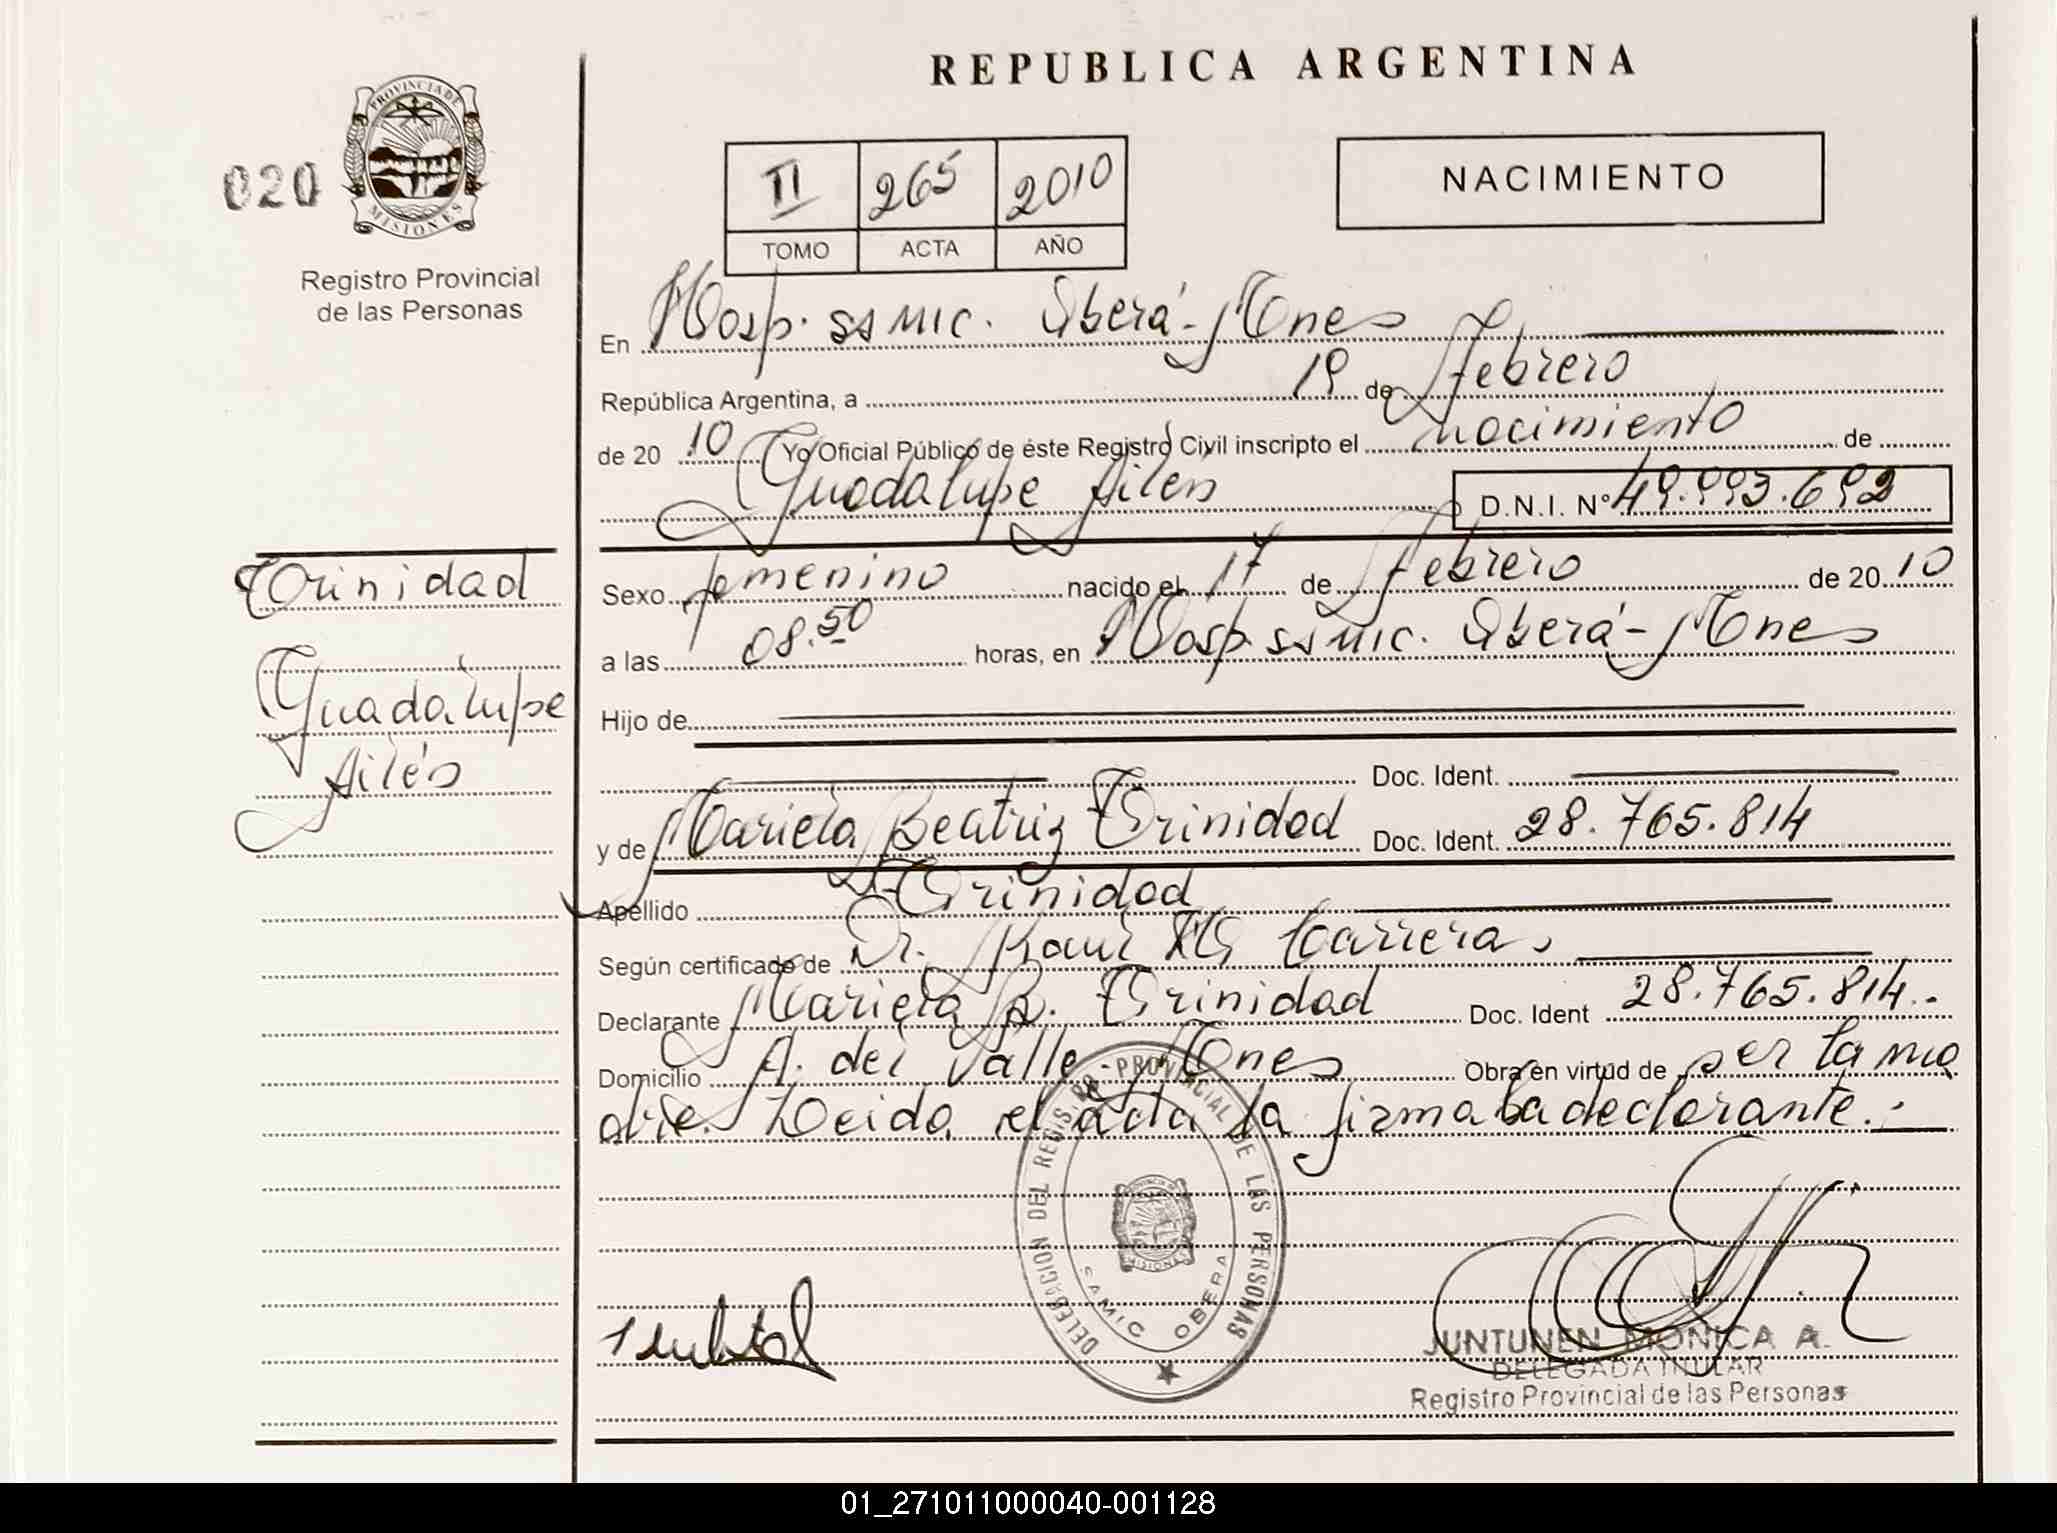 REPUBLICA ARGENTINA
020
PROVINCIA DE
MISIONES
Registro Provincial
de las Personas
II 265 2010
TOMO ACTA AÑO
NACIMIENTO
En Hosp. SAMIC. Oberá - Mnes
República Argentina, a 19 de Febrero
de 2010 Yo Oficial Público de éste Registro Civil inscripto el nacimiento de
Guadalupe Ailén D.N.I. Nº 49.993.692
Trinidad
Guadalupe
Ailén
Sexo femenino nacido el 17 de Febrero de 2010
a las 08.50 horas, en Hosp SAMIC. Oberá - Mnes
Hijo de
Doc. Ident.
y de Mariela Beatriz Trinidad Doc. Ident. 28.765.814
Apellido Trinidad
Según certificado de Dr. Raul Carrera
Declarante Mariela B. Trinidad Doc. Ident 28.765.814.
Domicilio A. del Valle - Mnes Obra en virtud de ser la ma
dre. Leida el acta la firma la declarante.
DELEGACION DEL REGISTRO PROVINCIAL DE LAS PERSONAS
MISIONES
SAMIC OBERA
JUNTUNEN MONICA A.
DELEGADA TITULAR
Registro Provincial de las Personas
01_271011000040-001128